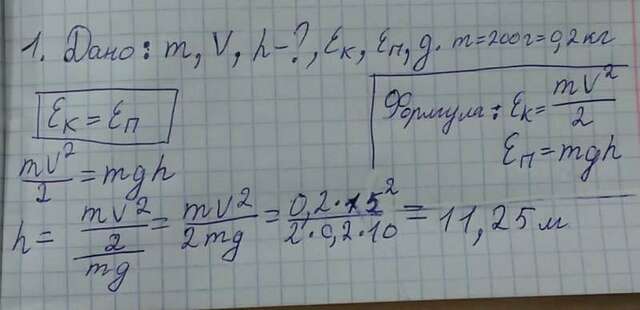 1. Дано: m, V, h-?, Eк, Eп, g. m=200г=0,2кг
Eк = Eп
Формула: Eк= mV²/2
Eп=mgh
mV²/2 = mgh
h = mV²/2/mg = mV²/2mg = 0,2·15²/2·0,2·10 = 11,25м